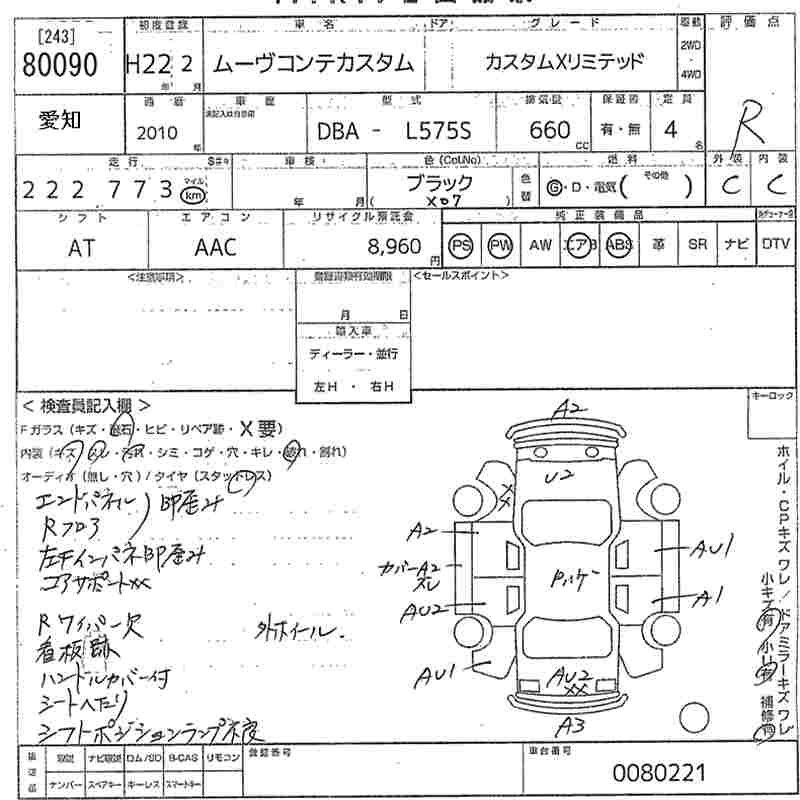 [243]
80090
初度登録
H22 2
年 月
車名
ムーヴコンテカスタム
ドア
グレード
カスタムXリミテッド
駆動
2WD
4WD
評価点
R
愛知
2010
年
車歴
型式
DBA - L575S
排気量
660
CC
保証書
有・無
定員
4
名
走行
222773
マイル
km
車検
年 月
色(Col.No)
ブラック
( X07 )
色替
燃料
G・D・電気( その他 )
外装
C
内装
C
シフト
AT
エアコン
AAC
リサイクル預託金
8,960
円
純正装備品
PS
PW
AW
エアB
ABS
革
SR
ナビ
DTV
<注意事項>
登録書類有効期限
月 日
輸入車
ディーラー・並行
左H ・ 右H
<セールスポイント>
< 検査員記入欄 >
Fガラス (キズ・飛石・ヒビ・リペア跡・X要)
内装 (キズ・スレ・汚れ・シミ・コゲ・穴・キレ・破れ・割れ)
オーディオ (無し・穴) / タイヤ (スタッドレス)
エンドパネル
Rフロア
印歪み
左Fインパネ印歪み
コアサポートXX
Rワイパー欠
外ホイール.
看板跡
ハンドルカバー付
シートへたり
シフトポジションランプ不良
A2
U2
XX
A2
カバーA2
スレ
AU2
AU1
AU1
A1
AU2
XX
A3
キーロック
ホイル・CPキズ ワレ / ドアミラーキズ ワレ
小キズ有 小凹有 補修有
取説
ナビ取説
ロム/SD
B-CAS
リモコン
ナンバー
スペアキー
キーレス
スマートキー
登録番号
車台番号
0080221